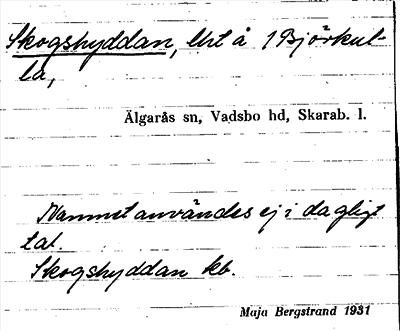 Skogshyddan, lht å 1 Björkul-
la,
Älgarås sn, Vadsbo hd, Skarab. l.
Namnet användes ej i dagligt
tal.
Skogshyddan kb.
Maja Bergstrand 1931